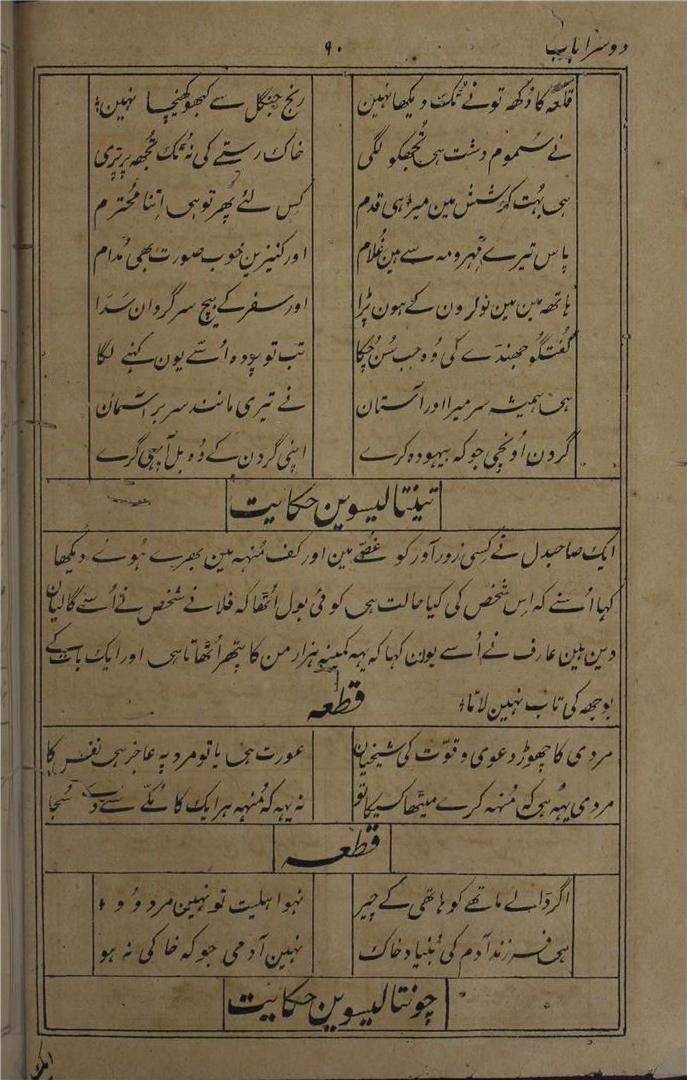 دوسرا باب ۹۰
قلعہ کا دُکھ تو نے ٹک دیکھا نہین رنج جنگل سے کبھو کھینچا نہین
نے سُموم دشت ہی تجھکو لگی خاک رستے کی نہ ٹک تُجھہ پر پڑی
ہی بہُت کوشش مین میرا ہی قدم کِس لئے پھر تو ہی اِتنا مُحترم
پاس تیرے مہر و مہ سے ہین غُلام اور کنیزین خوب صورت بھی مُدام
ہاتھہ مین مین نوکرون کے ہون پڑا اور سفر کے بیچ سرگردان سَدا
گُفتگو جھندے کی وُہ جب سُن چُکا تب تو پردہ اُسّے یون کہنے لگا
ہی ہمیشہ سر میرا اور آستان نے تیری مانند سر بر آسمان
گردن اُونچی جو کہ بیہودہ کرے اپنی گردن کے وُہ بل آپہی گرے
تینتالیسوین حکایت
ایک صاحبدل نے کِسی زورآور کو غُصّے مین اور کف مُنہہ مین بھرے ہُوے دیکھا
کہا اُسنے کہ اِس شخص کی کیا حالت ہی کوئی بول اُٹھا کہ فلانے شخص نے اُسے گالیان
دین ہین عارف نے اُسے یون کہا کہ یہہ کمینہ ہزار من کا پتھر اُٹھاتا ہی اور ایک بات کے
بوجھہ کی تاب نہین لاتا
قطعہ
مردی کا چھوڑ دعوی و قوّت کی شیخیان عورت ہی یا تو مرد پہ عاجز ہی نفس کا
مردی یہہ ہی کہ مُنہہ کرے میٹھا کِسیکا تو نہ یہہ کہ مُنہہ ہر ایک کا مُکّے سے دے سُجا
قطعہ
اگر ڈالے ماتھے کو ہاتھی کے چیر نہو اہلیت تو نہین مرد وُہ
ہی فرزند آدم کی بُنیاد خاک نہین آدمی جو کہ خاکی نہ ہو
چونتالیسوین حکایت
ایک